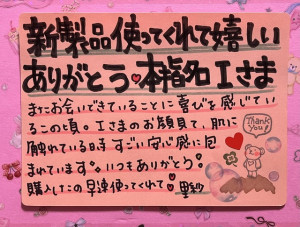 新製品使ってくれて嬉しい
ありがとう♥本指名Iさま
またお会いできていることに喜びを感じてい
るこの頃。Iさまのお顔見て、肌に
触れている時すごい安い感に包
まれています。いつもありがとう!
購入したの早速使ってくれて♥里紗
Thank
You!